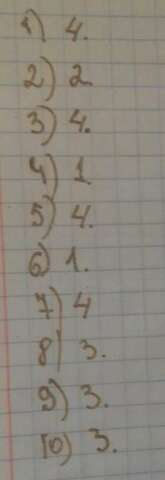 1) 4.
2) 2
3) 4.
4) 1
5) 4.
6) 1.
7) 4
8) 3.
9) 3.
10) 3.